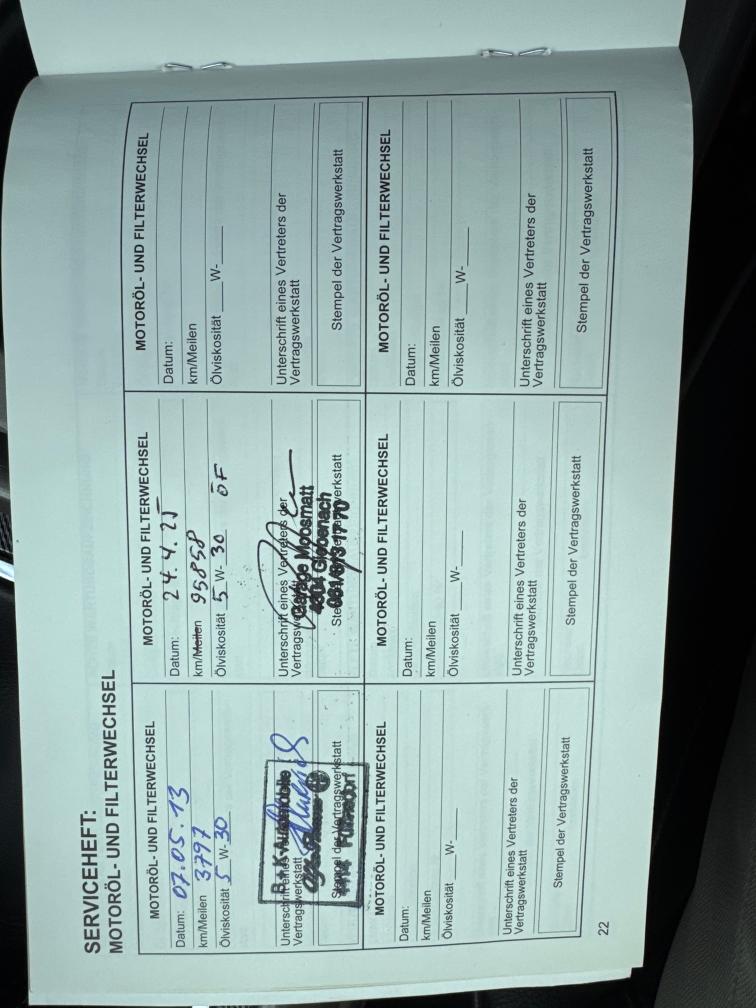 SERVICEHEFT:
MOTORÖL- UND FILTERWECHSEL
MOTORÖL- UND FILTERWECHSEL
Datum: 07.05.13
km/Meilen 3797
Ölviskosität 5 W- 30
Unterschrift eines Vertreters der
Vertragswerkstatt
Stempel der Vertragswerkstatt
B + K Automobile
MOTORÖL- UND FILTERWECHSEL
Datum: 24.4.25
km/Meilen 95858
Ölviskosität 5 W- 30 ÖF
Unterschrift eines Vertreters der
Vertragswerkstatt
Garage Moosmatt
4304 Giebenach
Stempel der Vertragswerkstatt
MOTORÖL- UND FILTERWECHSEL
Datum:
km/Meilen
Ölviskosität ___ W-___
Unterschrift eines Vertreters der
Vertragswerkstatt
Stempel der Vertragswerkstatt
MOTORÖL- UND FILTERWECHSEL
Datum:
km/Meilen
Ölviskosität ___ W-___
Unterschrift eines Vertreters der
Vertragswerkstatt
Stempel der Vertragswerkstatt
MOTORÖL- UND FILTERWECHSEL
Datum:
km/Meilen
Ölviskosität ___ W-___
Unterschrift eines Vertreters der
Vertragswerkstatt
Stempel der Vertragswerkstatt
MOTORÖL- UND FILTERWECHSEL
Datum:
km/Meilen
Ölviskosität ___ W-___
Unterschrift eines Vertreters der
Vertragswerkstatt
Stempel der Vertragswerkstatt
22